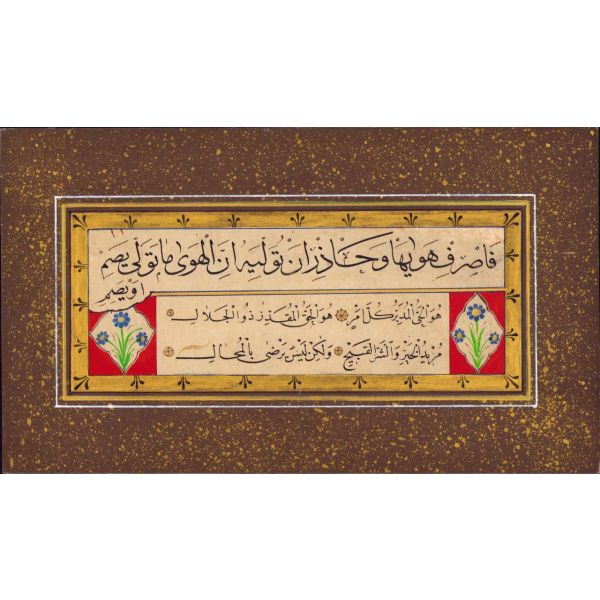 فَاصْرِفْ هَوٰيهَا وَحَاذِرْ اَنْ تُوَلِّيَهُ اِنَّ الْهَوٰى مَا تَوَلّٰى يُصْمِ
اَوْ يَصِمِ
هُوَ الْحَىُّ الْمُدَبِّرُ كُلَّ اَمْرٍ هُوَ الْحَقُّ الْمُقَدِّرُ ذُو الْجَلَالِ
مُرِيدُ الْخَيْرِ وَالشَّرِّ الْقَبِيحِ وَلٰكِنْ لَيْسَ يَرْضٰى بِالْمُحَالِ